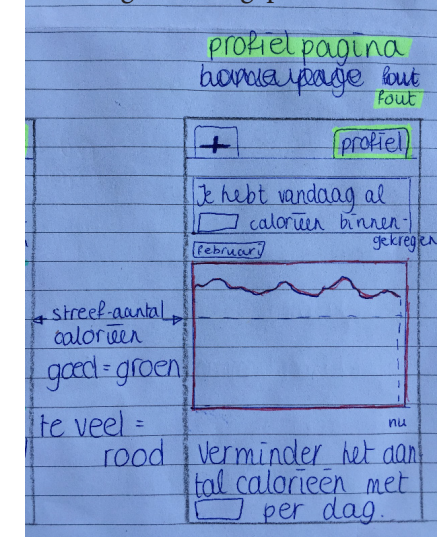 profiel pagina
fout
fout
+
profiel
Je hebt vandaag al
calorieën binnen-
gekregen
februari
streef-aantal
calorieën
goed = groen
te veel =
rood
nu
Verminder het aan
tal calorieën met
per dag.